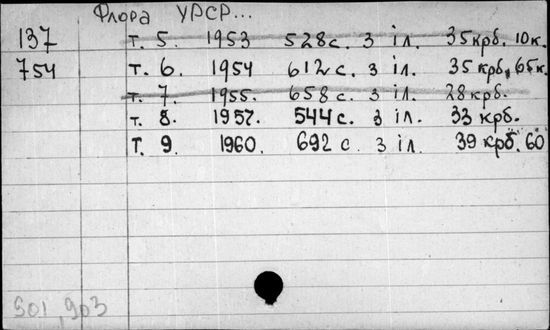 Флора УРСР...
137 т. 5. 1953 528 с. з іл. 35 крб. 10 к.
754 т. 6. 1954 612 с. з іл. 35 крб. 65 к.
т. 7. 1955. 658 с. з іл. 28 крб.
т. 8. 1957. 544 с. з іл. 33 крб.
т. 9. 1960. 692 с. з іл. 39 крб. 60
901, 903